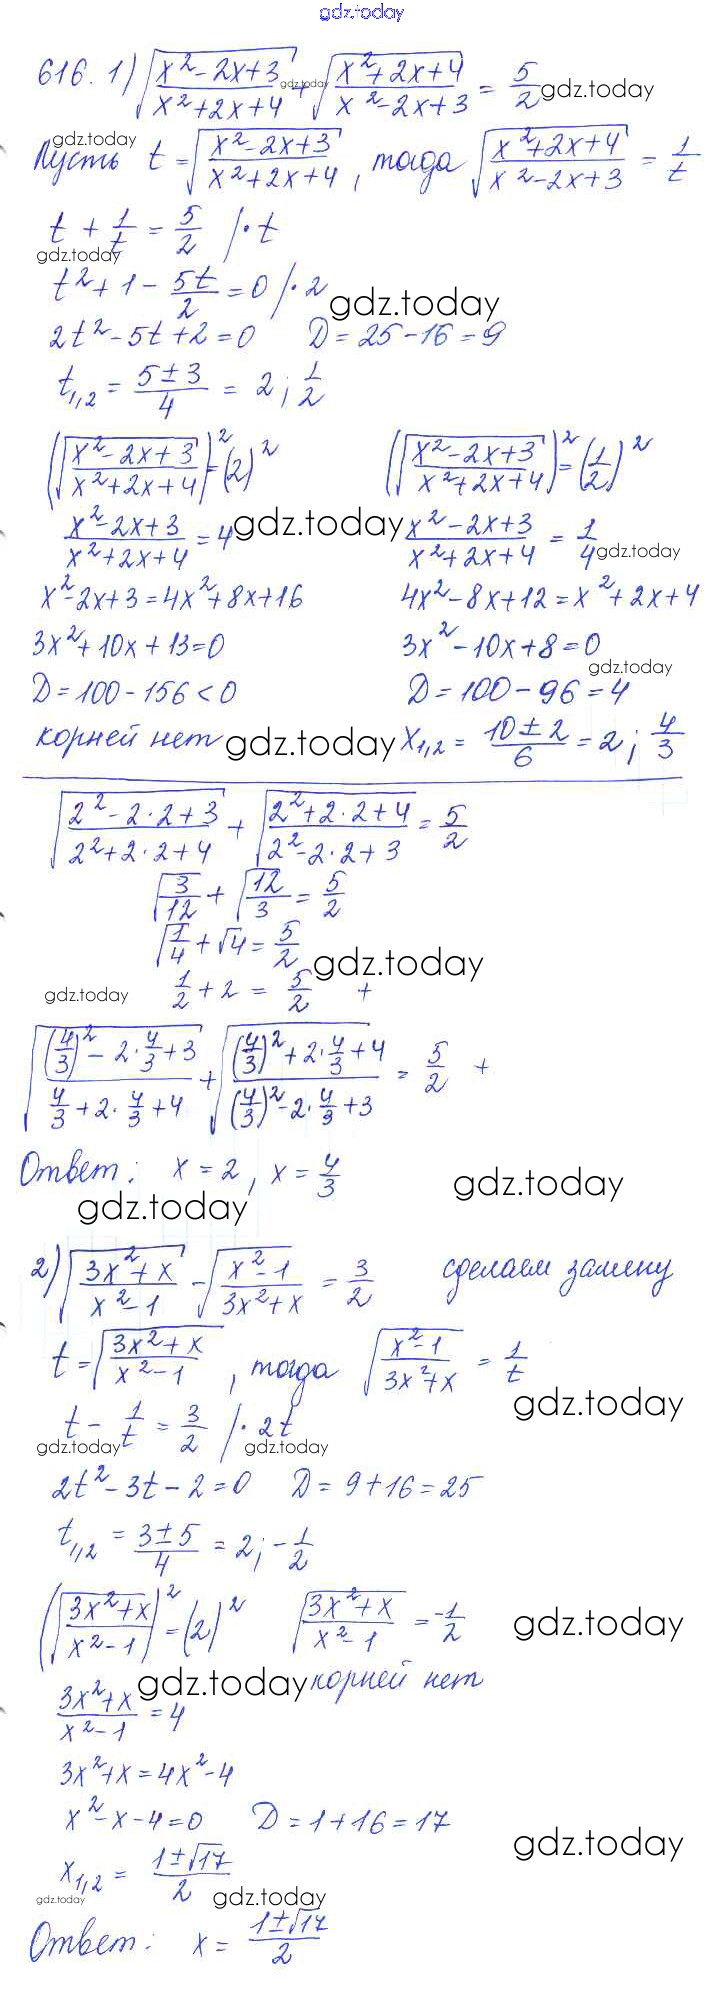 gdz.today
616. 1) √((x²-2x+3)/(x²+2x+4)) + √((x²+2x+4)/(x²-2x+3)) = 5/2 gdz.today
gdz.today
gdz.today
Пусть t = √((x²-2x+3)/(x²+2x+4)), тогда √((x²+2x+4)/(x²-2x+3)) = 1/t
t + 1/t = 5/2 |·t
gdz.today
t² + 1 - 5t/2 = 0 |·2
gdz.today
2t² - 5t + 2 = 0 D = 25 - 16 = 9
t₁,₂ = (5±3)/4 = 2; 1/2
(√((x²-2x+3)/(x²+2x+4)))² = (2)² (√((x²-2x+3)/(x²+2x+4)))² = (1/2)²
(x²-2x+3)/(x²+2x+4) = 4 gdz.today (x²-2x+3)/(x²+2x+4) = 1/4 gdz.today
x²-2x+3 = 4x²+8x+16 4x²-8x+12 = x²+2x+4
3x²+10x+13=0 3x²-10x+8=0
gdz.today
D = 100 - 156 < 0 D = 100 - 96 = 4
корней нет gdz.today x₁,₂ = (10±2)/6 = 2; 4/3
√((2²-2·2+3)/(2²+2·2+4)) + √((2²+2·2+4)/(2²-2·2+3)) = 5/2
√(3/12) + √(12/3) = 5/2
√(1/4) + √4 = 5/2 gdz.today
gdz.today 1/2 + 2 = 5/2 +
√(((4/3)²-2·4/3+3)/(4/3+2·4/3+4)) + √(((4/3)²+2·4/3+4)/((4/3)²-2·4/3+3)) = 5/2 +
Ответ: x = 2, x = 4/3 gdz.today
gdz.today
2) √((3x²+x)/(x²-1)) - √((x²-1)/(3x²+x)) = 3/2 сделаем замену
t = √((3x²+x)/(x²-1)), тогда √((x²-1)/(3x²+x)) = 1/t
gdz.today
t - 1/t = 3/2 |·2t
gdz.today gdz.today
2t² - 3t - 2 = 0 D = 9 + 16 = 25
t₁,₂ = (3±5)/4 = 2; -1/2
(√((3x²+x)/(x²-1)))² = (2)² √((3x²+x)/(x²-1)) = -1/2 gdz.today
(3x²+x)/(x²-1) = 4 gdz.today корней нет
3x²+x = 4x²-4
x²-x-4=0 D = 1+16 = 17
gdz.today
x₁,₂ = (1±√17)/2
gdz.today gdz.today
Ответ: x = (1±√17)/2